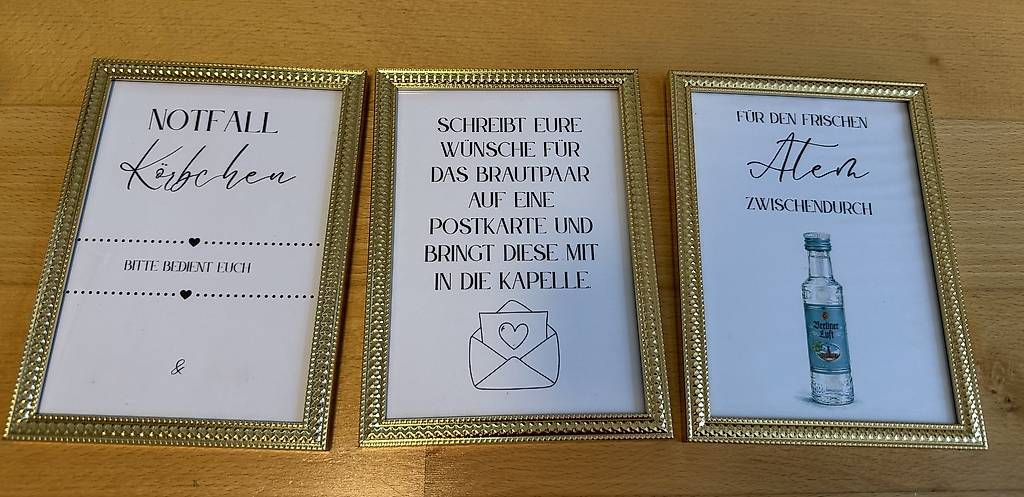 NOTFALL
Körbchen
BITTE BEDIENT EUCH
&
SCHREIBT EURE
WÜNSCHE FÜR
DAS BRAUTPAAR
AUF EINE
POSTKARTE UND
BRINGT DIESE MIT
IN DIE KAPELLE.
FÜR DEN FRISCHEN
Atem
ZWISCHENDURCH
Berliner
Luft